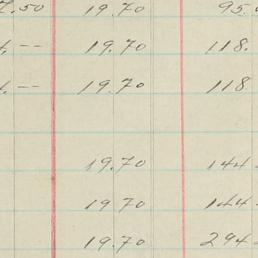 7.50 19.70 95.0
4, -- 19.70 118.
4, -- 19.70 118
19.70 144
19.70 144
19.70 294